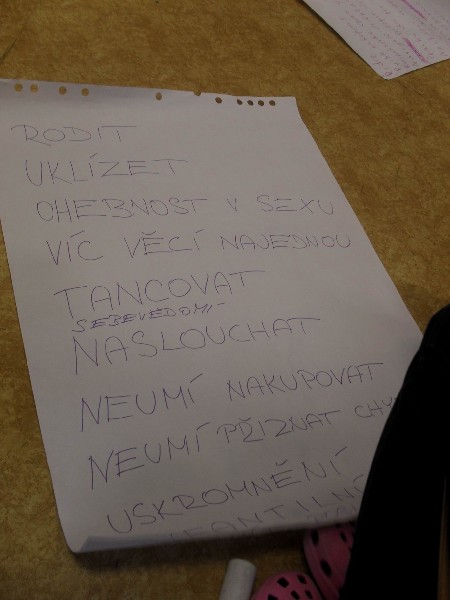 RODIT
UKLÍZET
OHEBNOST V SEXU
VÍC VĚCÍ NAJEDNOU
TANCOVAT
SEBEVĚDOMÍ
NASLOUCHAT
NEUMÍ NAKUPOVAT
NEUMÍ PŘIZNAT
USKROMNĚNÍ